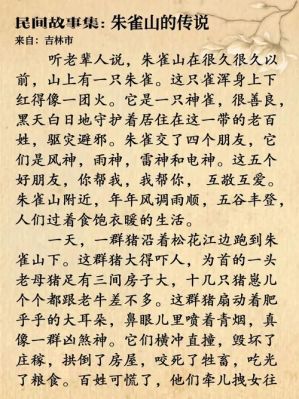 民间故事集：朱雀山的传说
来自：吉林市
听老辈人说，朱雀山在很久很久以
前，山上有一只朱雀。这只雀浑身上下
红得像一团火。它是一只神雀，很善良，
黑天白日地守护着居住在这一带的老百
姓，驱灾避邪。朱雀交了四个朋友，它
们是风神，雨神，雷神和电神。这五个
好朋友，你帮我，我帮你， 互敬互爱。
朱雀山附近，年年风调雨顺，五谷丰登，
人们过着食饱衣暖的生活。
一天，一群猪沿着松花江边跑到朱
雀山下。这群猪大得吓人，为首的一头
老母猪足有三间房子大，十几只猪崽儿
个个都跟老牛差不多。这群猪扇动着肥
乎乎的大耳朵，鼻眼儿里喷着青烟，真
像一群凶煞神。它们横冲直撞，毁坏了
庄稼，拱倒了房屋，咬死了牲畜，吃光
了粮食。百姓可慌了，他们牵儿拽女往